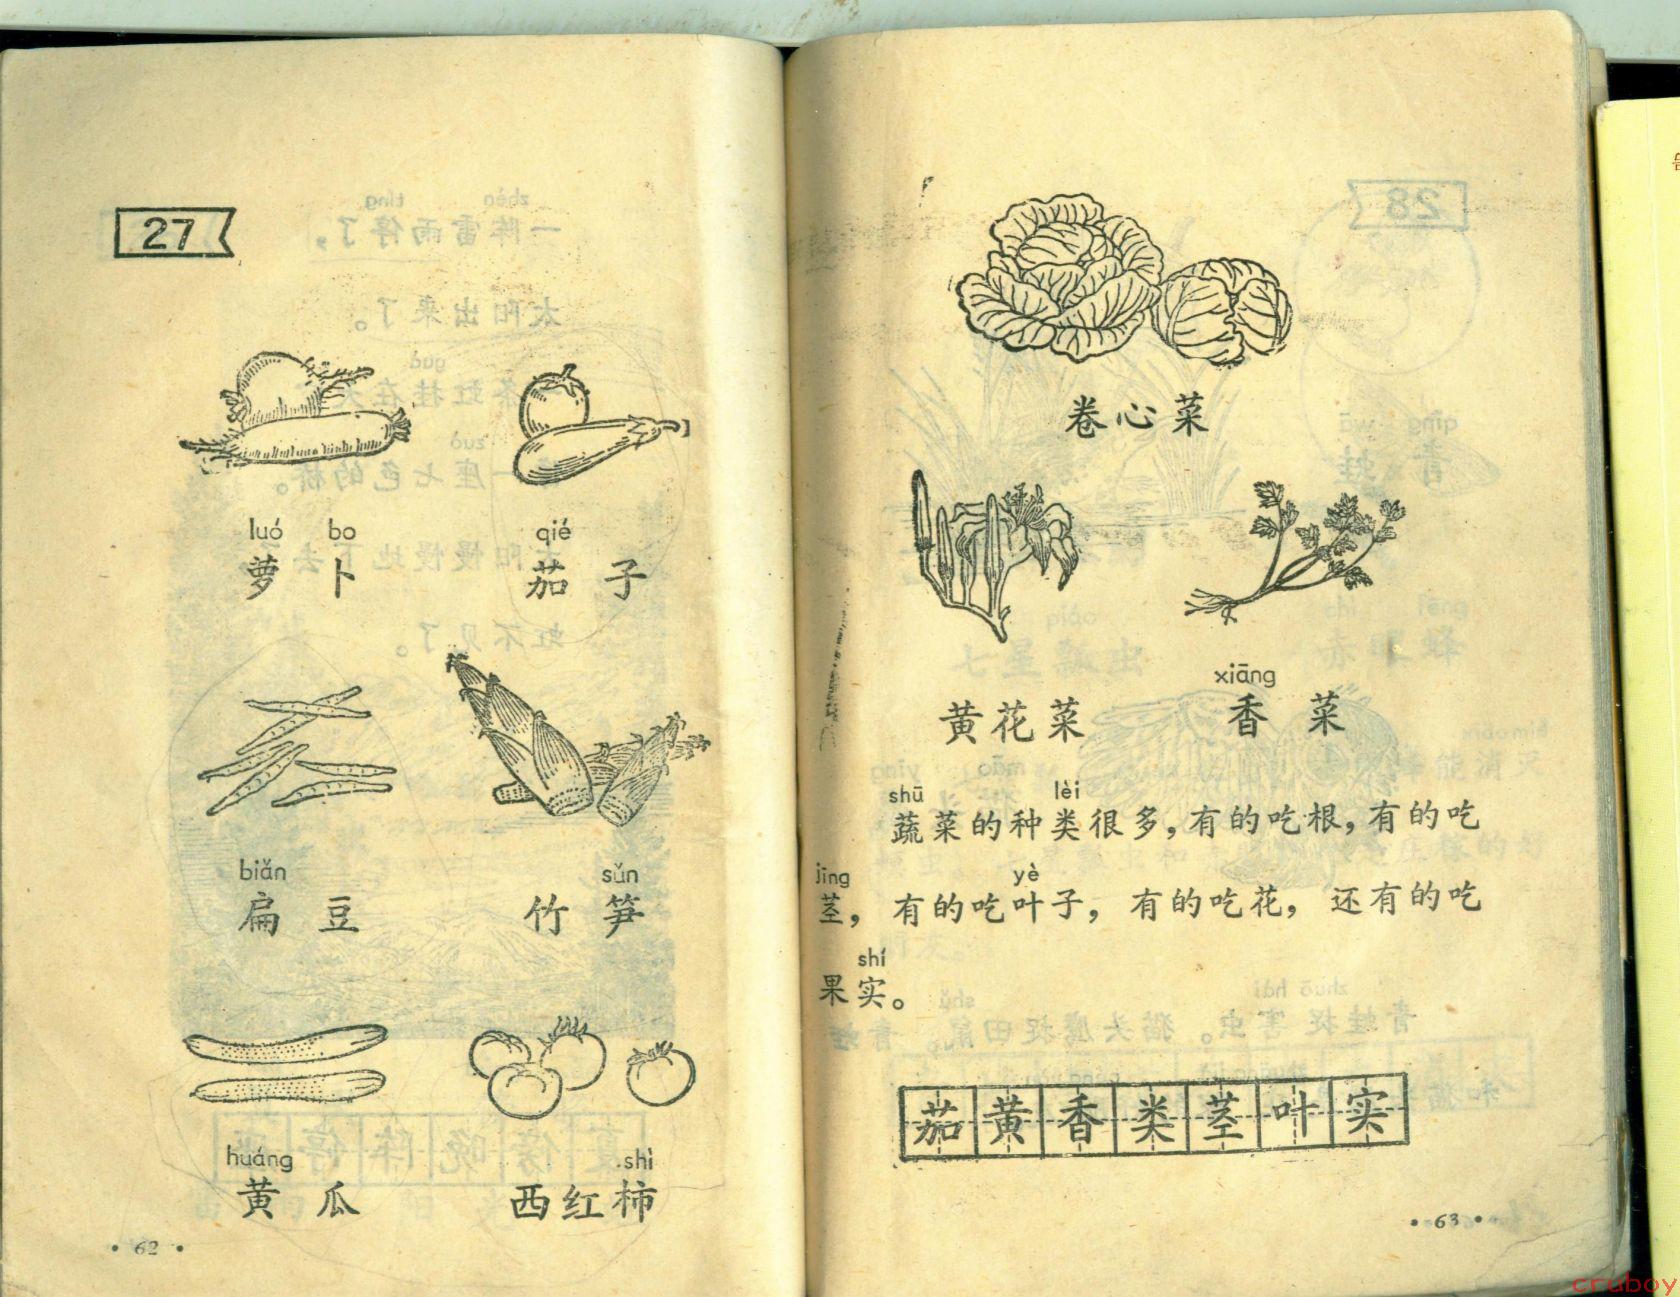 27
luó bo qié
萝卜 茄子
biǎn sǔn
扁豆 竹笋
huáng shì
黄瓜 西红柿
· 62 ·
卷心菜
xiāng
黄花菜 香菜
shū lèi
蔬菜的种类很多，有的吃根，有的吃
jīng yè
茎，有的吃叶子，有的吃花，还有的吃
shí
果实。
茄黄香类茎叶实
· 63 ·
cruboy